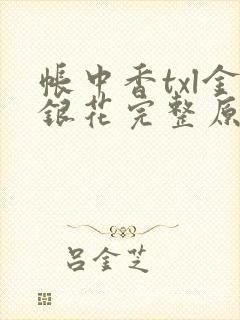 帐中香txl金
银花完整原
吕金芝